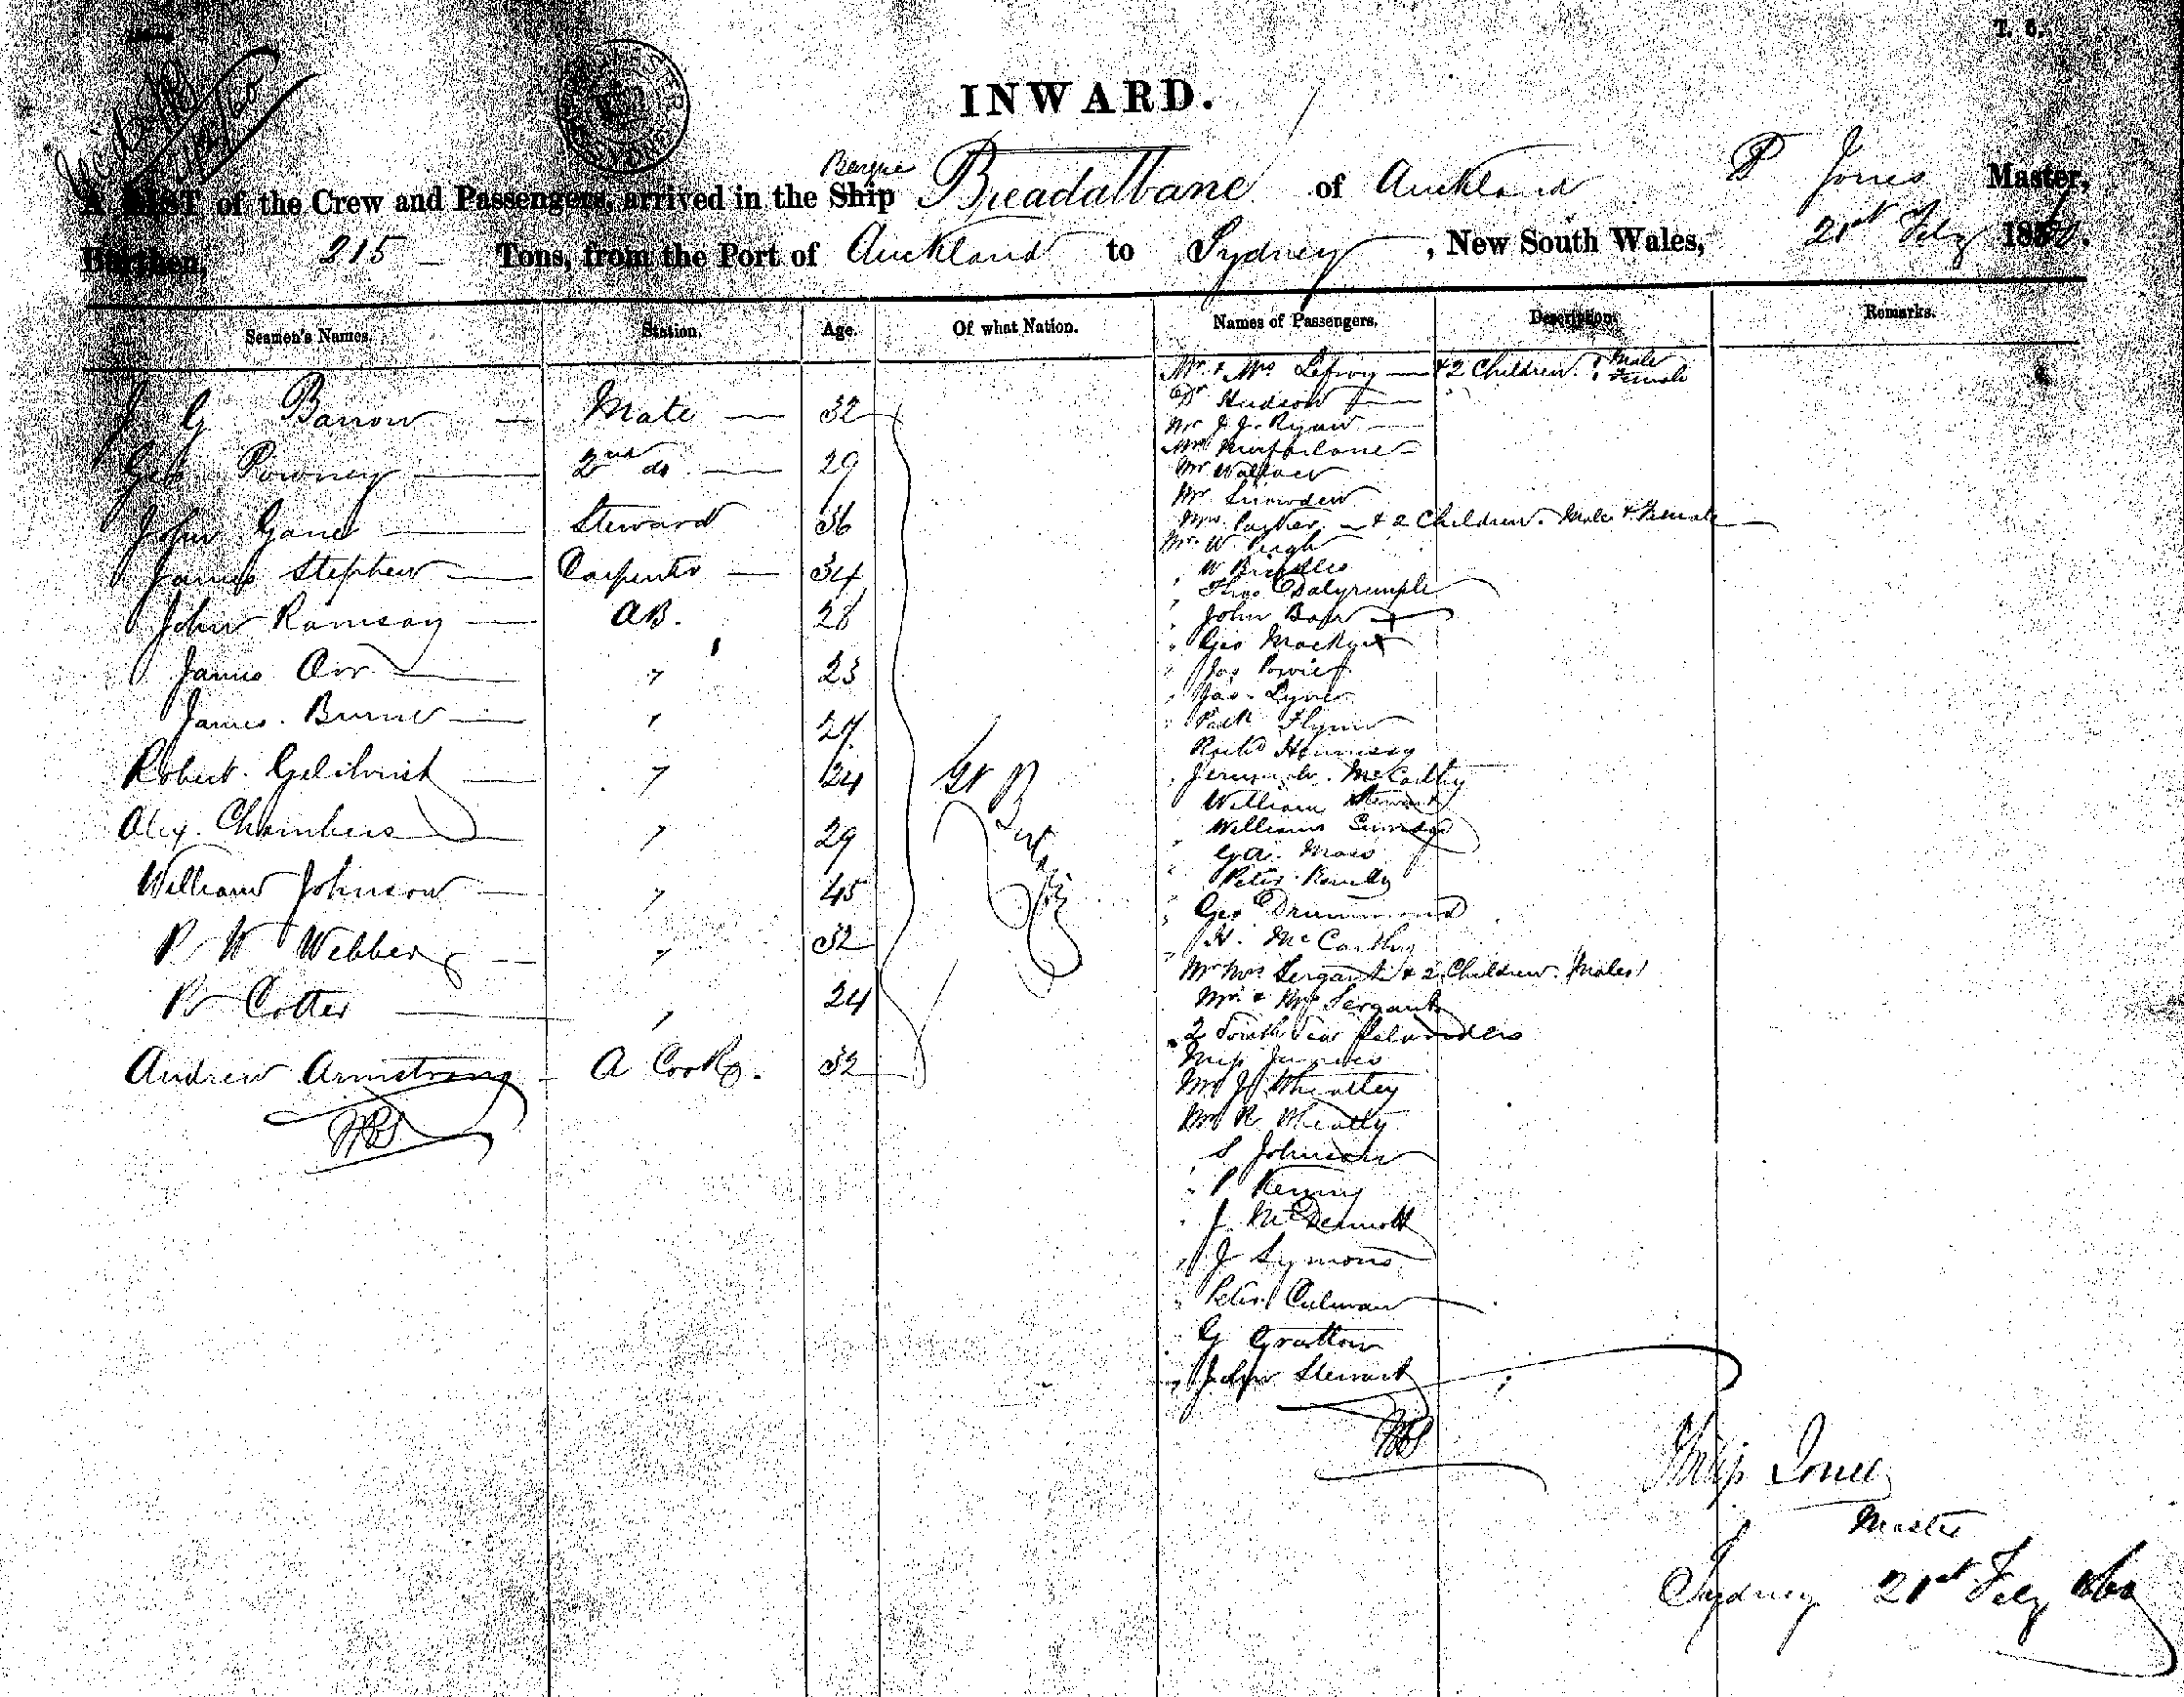 T. 5.
INWARD.
A LIST of the Crew and Passengers, arrived in the Ship Barque Breadalbane of Auckland P Jones Master,
Burthen, 215 Tons, from the Port of Auckland to Sydney, New South Wales, 21st Feby 1860.
Seamen's Names. Station. Age. Of what Nation. Names of Passengers. Description. Remarks.
J G Barrow Mate 32
Geo Powney 2nd do. 29
John Gane Steward 36
James Stephen Carpenter 34
John Ramsay AB. 28
James Orr " 23
James Burne " 27
Robert Gilchrist " 24
Alex. Chambers " 29
William Johnson " 45
P W Webber " 32
P Cotter " 24
Andrew Armstrong A Cook. 32
Gt Britain
Mr & Mrs Lefroy & 2 Children 1 Male 1 Female
Dr Hudson
Mr J. J. Ryan
Macfarlane
Mr Wallace
Mr Snowden
Mrs. Parker & 2 Children. Male & Female
Mr. W. Pugh
" W
" Thos Dalyrumple
" John Barr
" Geo
" Jas
" Jas. Lyne
" Patk Flynn
Richd Hennesay
" Jeremiah McCarthy
William Stewart
" William
" G. A. Moss
" Peter
" Geo Drummond
" H. McCarthy
Mr Mrs Sergant & 2 Children. Males
Mr. & Mrs Sergant
2 South Sea Islanders
Miss
Mr J Wheatley
Mr R Wheatly
S Johnson
" P Kenny
" J. McDermott
" J Symons
" Peter Culman
G Gratton
" John Stewart
Philip Jones
Master
Sydney 21st Feby 1860